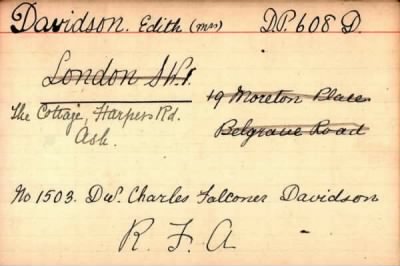 Davidson. Edith (Mrs) D.P. 608 D.
London S.W.1.
19 Moreton Place
Belgrave Road
The Cottage, Harpers Rd.
Ash.
No 1503. Dvr. Charles Falconer Davidson
R. F. A